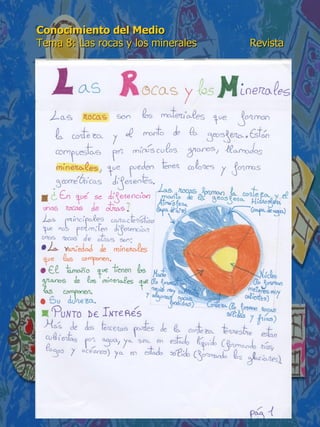 Conocimiento del Medio
Tema 8: Las rocas y los minerales Revista
Las Rocas y los Minerales
Las rocas son los materiales que forman
la corteza y el manto de la geosfera. Están
compuestas por minúsculos granos, llamados
minerales, que pueden tener colores y formas
geométricas diferentes.
¿En qué se diferencian
unas rocas de otras?
Las principales características
que nos permiten diferenciar
unas rocas de otras son:
La variedad de minerales
que las componen.
El tamaño que tienen los
granos de los minerales que
las componen.
Su dureza.
Las rocas forman la corteza y el
manto de la geosfera
Hidrosfera
(capa de agua)
Atmósfera
(capa de aire)
Manto
Núcleo
(lo forman
muy
calientes)
Corteza (la forman rocas
sólidas y frías)
PUNTO DE INTERÉS
Más de dos terceras partes de la corteza terrestre están
cubiertas por agua, ya sea en estado líquido (formando ríos,
lagos y océanos) ya en estado sólido (formando los glaciares)
pág 1